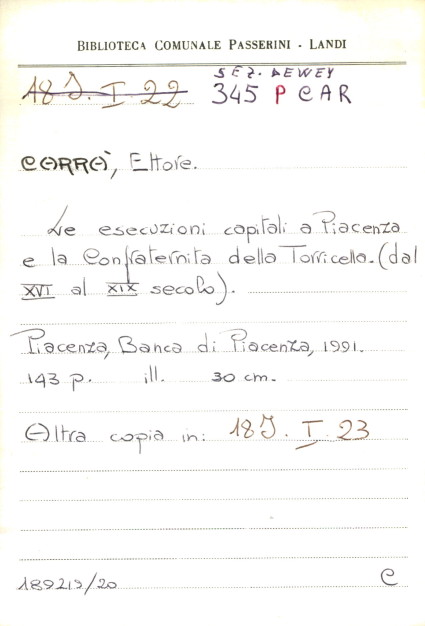 BIBLIOTECA COMUNALE PASSERINI - LANDI
SEZ. DEWEY
18 J. I. 22 345 P CAR
CARRÀ, Ettore.
Le esecuzioni capitali a Piacenza
e la Confraternita della Torricella. (dal
XVI al XIX secolo).
Piacenza, Banca di Piacenza, 1991.
143 p. ill. 30 cm.
Altra copia in: 18 J. I. 23
189219/20 C